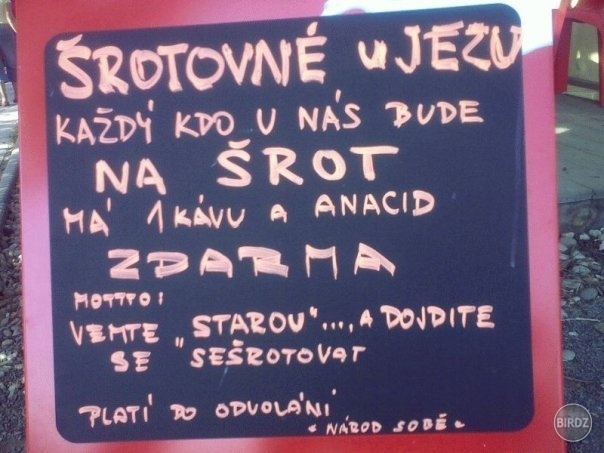 ŠROTOVNÉ u JEZU
KAŽDÝ KDO U NÁS BUDE
NA ŠROT
MÁ 1 KÁVU A ANACID
ZDARMA
MOTTTO:
VEMTE „STAROU"..., A DOJDITE
SE SEŠROTOVAT
PLATÍ DO ODVOLÁNÍ
"NÁROD SOBĚ"
BIRDZ